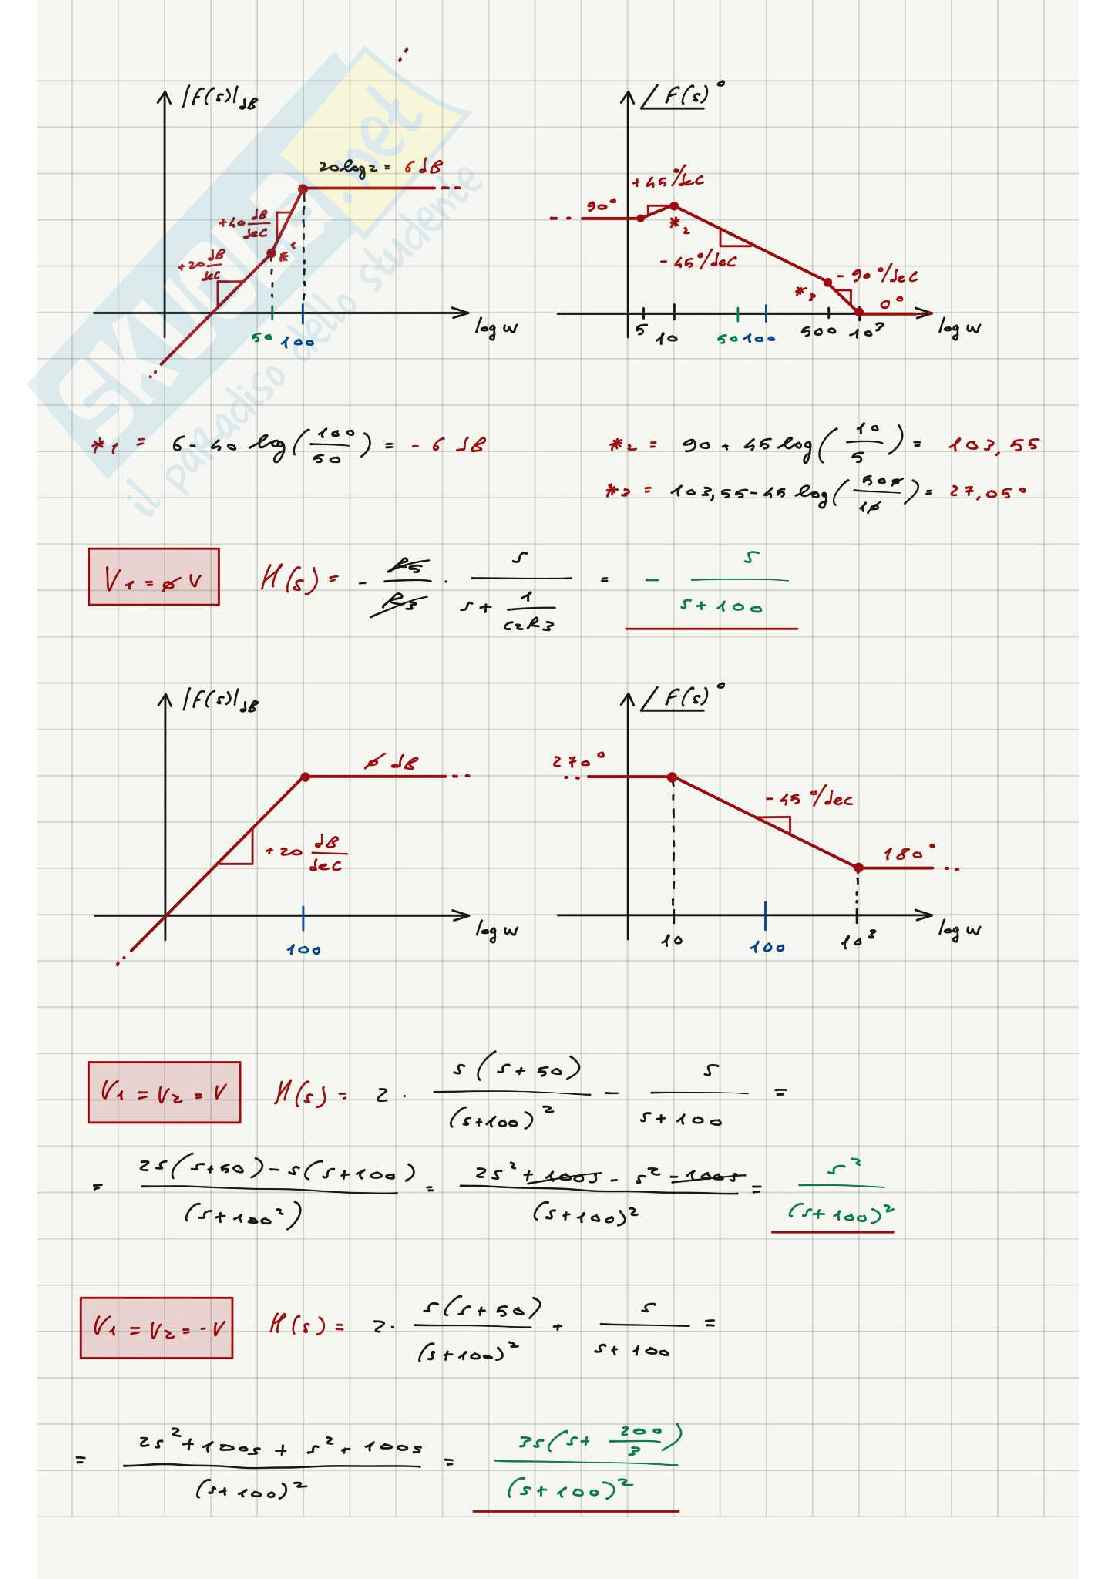 |F(s)|dB
∠F(s)°
20log2 = 6 dB
+40 dB/dec
+20 dB/dec
*1
50 100
log w
90°
+45°/dec
*2
-45°/dec
*3
-90°/dec
0°
5 10 50 100 500 10³
log w
*1 = 6 - 40 log(100/50) = -6 dB
*2 = 90 + 45 log(10/5) = 103,55
*3 = 103,55 - 45 log(500/10) = 27,05°
V1 = 0 V
H(s) = - R5/R3 · s/(s + 1/(C2R3)) = - s/(s+100)
|F(s)|dB
∠F(s)°
0 dB
+20 dB/dec
100
log w
270°
-45°/dec
180°
10 100 10³
log w
V1 = V2 = V
H(s) = 2 · s(s+50)/(s+100)² - s/(s+100) =
= 2s(s+50) - s(s+100)/(s+100²) = 2s² + 100s - s² - 100s/(s+100)² = s²/(s+100)²
V1 = V2 = -V
H(s) = 2 · s(s+50)/(s+100)² + s/(s+100) =
= 2s² + 100s + s² + 100s/(s+100)² = 3s(s + 200/3)/(s+100)²
SKUOLA.net
il paradiso dello studente